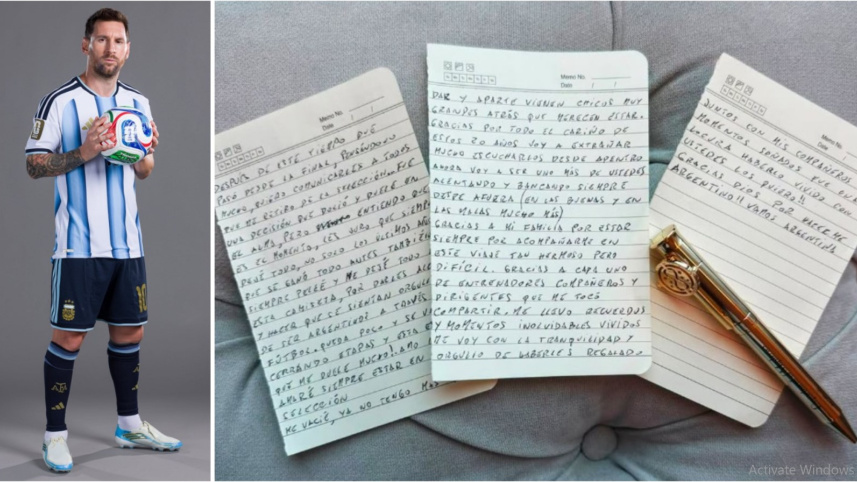 10
Memo No.
Date / /
DESPUES DE ESTE TIEMPO QUE
PASÓ DESDE LA FINAL, PENSÁNDOLO
MUCHO, QUIERO COMUNICARLES A TODOS
QUE ME RETIRO DE LA SELECCIÓN. FUE
UNA DECISIÓN QUE DOLIÓ Y DUELE EN
EL ALMA, PERO ENTIENDO QUE
ES EL MOMENTO. LES JURO QUE SIEMPRE
DEJÉ TODO, NO SOLO LOS ÚLTIMOS AÑOS
QUE SE GANÓ TODO, ANTES TAMBIÉN
SIEMPRE PELEÉ Y ME DEJÉ TODO
ESTA CAMISETA, POR DARLES ALE
Y HACER QUE SE SIENTAN ORGULL
DE SER ARGENTINOS A TRAVÉS
FÚTBOL. QUEDA POCO Y SE V
CERRANDO ETAPAS Y ESTA E
QUE ME DUELE MUCHO. AMO
AMARÉ SIEMPRE ESTAR EN
SELECCIÓN
ME VACIÉ, YA NO TENGO MÁS
Memo No.
Date / /
DAR Y APARTE VIENEN CHICOS MUY
GRANDES ATRÁS QUE MERECEN ESTAR.
GRACIAS POR TODO EL CARIÑO DE
ESTOS 20 AÑOS VOY A EXTRAÑAR
MUCHO ESCUCHARLOS DESDE ADENTRO
AHORA VOY A SER UNO MÁS DE USTEDES
ALENTANDO Y BANCANDO SIEMPRE
DESDE AFUERA (EN LAS BUENAS Y EN
LAS MALAS MUCHO MÁS)
GRACIAS A MI FAMILIA POR ESTAR
SIEMPRE POR ACOMPAÑARME EN
ESTE VIAJE TAN HERMOSO PERO
DIFÍCIL. GRACIAS A CADA UNO
DE ENTRENADORES COMPAÑEROS Y
DIRIGENTES QUE ME TOCÓ
COMPARTIR. ME LLEVO RECUERDOS
Y MOMENTOS INOLVIDABLES VIVIDOS
ME VOY CON LA TRANQUILIDAD Y
ORGULLO DE HABERLES REGALADO.
Memo No.
Date / /
JUNTOS CON MIS COMPAÑEROS
MOMENTOS SOÑADOS FUE UNA
LOCURA HABERLO VIVIDO CON
USTEDES LOS QUIERO!!
GRACIAS DIOS POR HACERME
ARGENTINO!! VAMOS ARGENTINA
Activate Windows